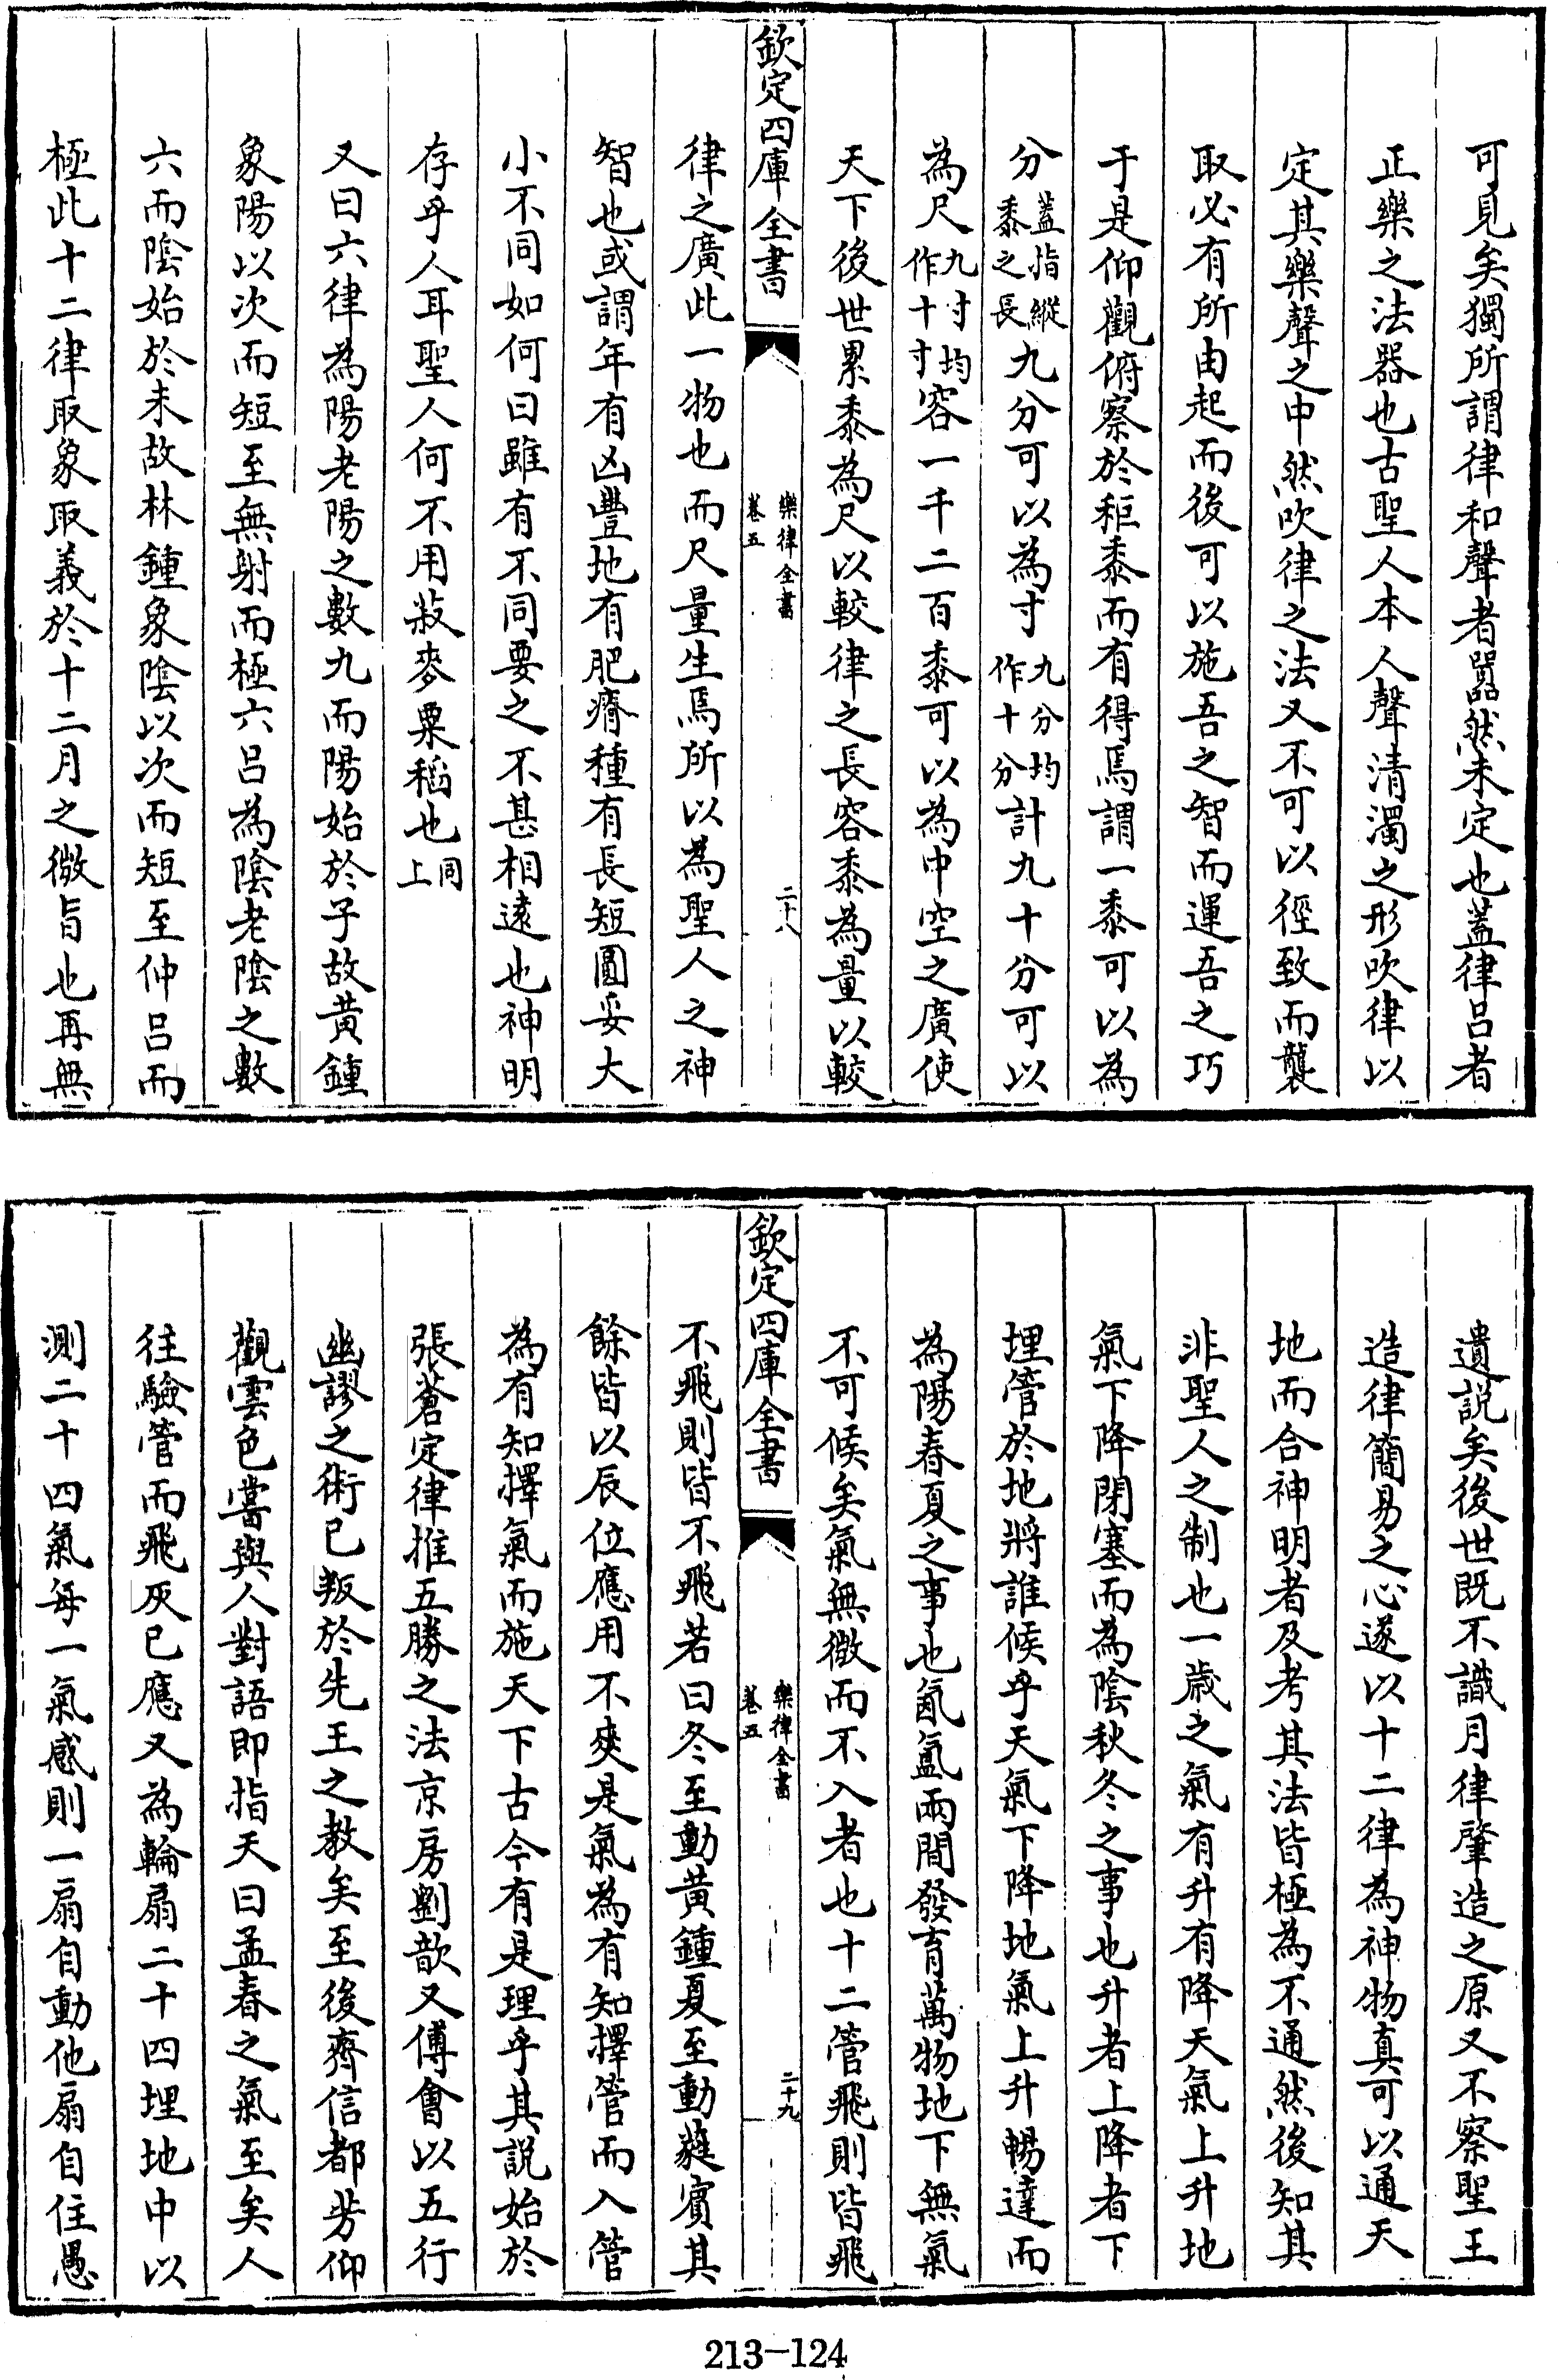 可見矣獨所謂律和聲者嚚然未定也蓋律呂者
正樂之法器也古聖人本人聲清濁之形吹律以
定其樂聲之中然吹律之法又不可以徑致而襲
取必有所由起而後可以施吾之智而運吾之巧
于是仰觀俯察於秬黍而有得焉謂一黍可以為
分蓋指縱黍之長九分可以為寸九分均作十分計九十分可以
為尺九寸均作十寸容一千二百黍可以為中空之廣使
天下後世累黍為尺以較律之長容黍為量以較
欽定四庫全書
樂律全書
卷五
二十八
律之廣此一物也而尺量生焉所以為聖人之神
智也或謂年有凶豐地有肥瘠種有長短圓妥大
小不同如何曰雖有不同要之不甚相遠也神明
存乎人耳聖人何不用菽麥粟稻也同上
又曰六律為陽老陽之數九而陽始於子故黃鍾
象陽以次而短至無射而極六呂為陰老陰之數
六而陰始於未故林鍾象陰以次而短至仲呂而
極此十二律取象取義於十二月之微旨也再無
遺說矣後世既不識月律肇造之原又不察聖王
造律簡易之心遂以十二律為神物真可以通天
地而合神明者及考其法皆極為不通然後知其
非聖人之制也一歲之氣有升有降天氣上升地
氣下降閉塞而為陰秋冬之事也升者上降者下
埋管於地將誰候乎天氣下降地氣上升暢達而
為陽春夏之事也氤氳兩間發育萬物地下無氣
不可候矣氣無微而不入者也十二管飛則皆飛
欽定四庫全書
樂律全書
卷五
二十九
不飛則皆不飛若曰冬至動黃鍾夏至動蕤賓其
餘皆以辰位應用不爽是氣為有知擇管而入管
為有知擇氣而施天下古今有是理乎其說始於
張蒼定律推五勝之法京房劉歆又傅會以五行
幽謬之術已叛於先王之教矣至後齊信都芳仰
觀雲色嘗與人對語即指天曰孟春之氣至矣人
往驗管而飛灰已應又為輪扇二十四埋地中以
測二十四氣每一氣感則一扇自動他扇自住愚
213-124